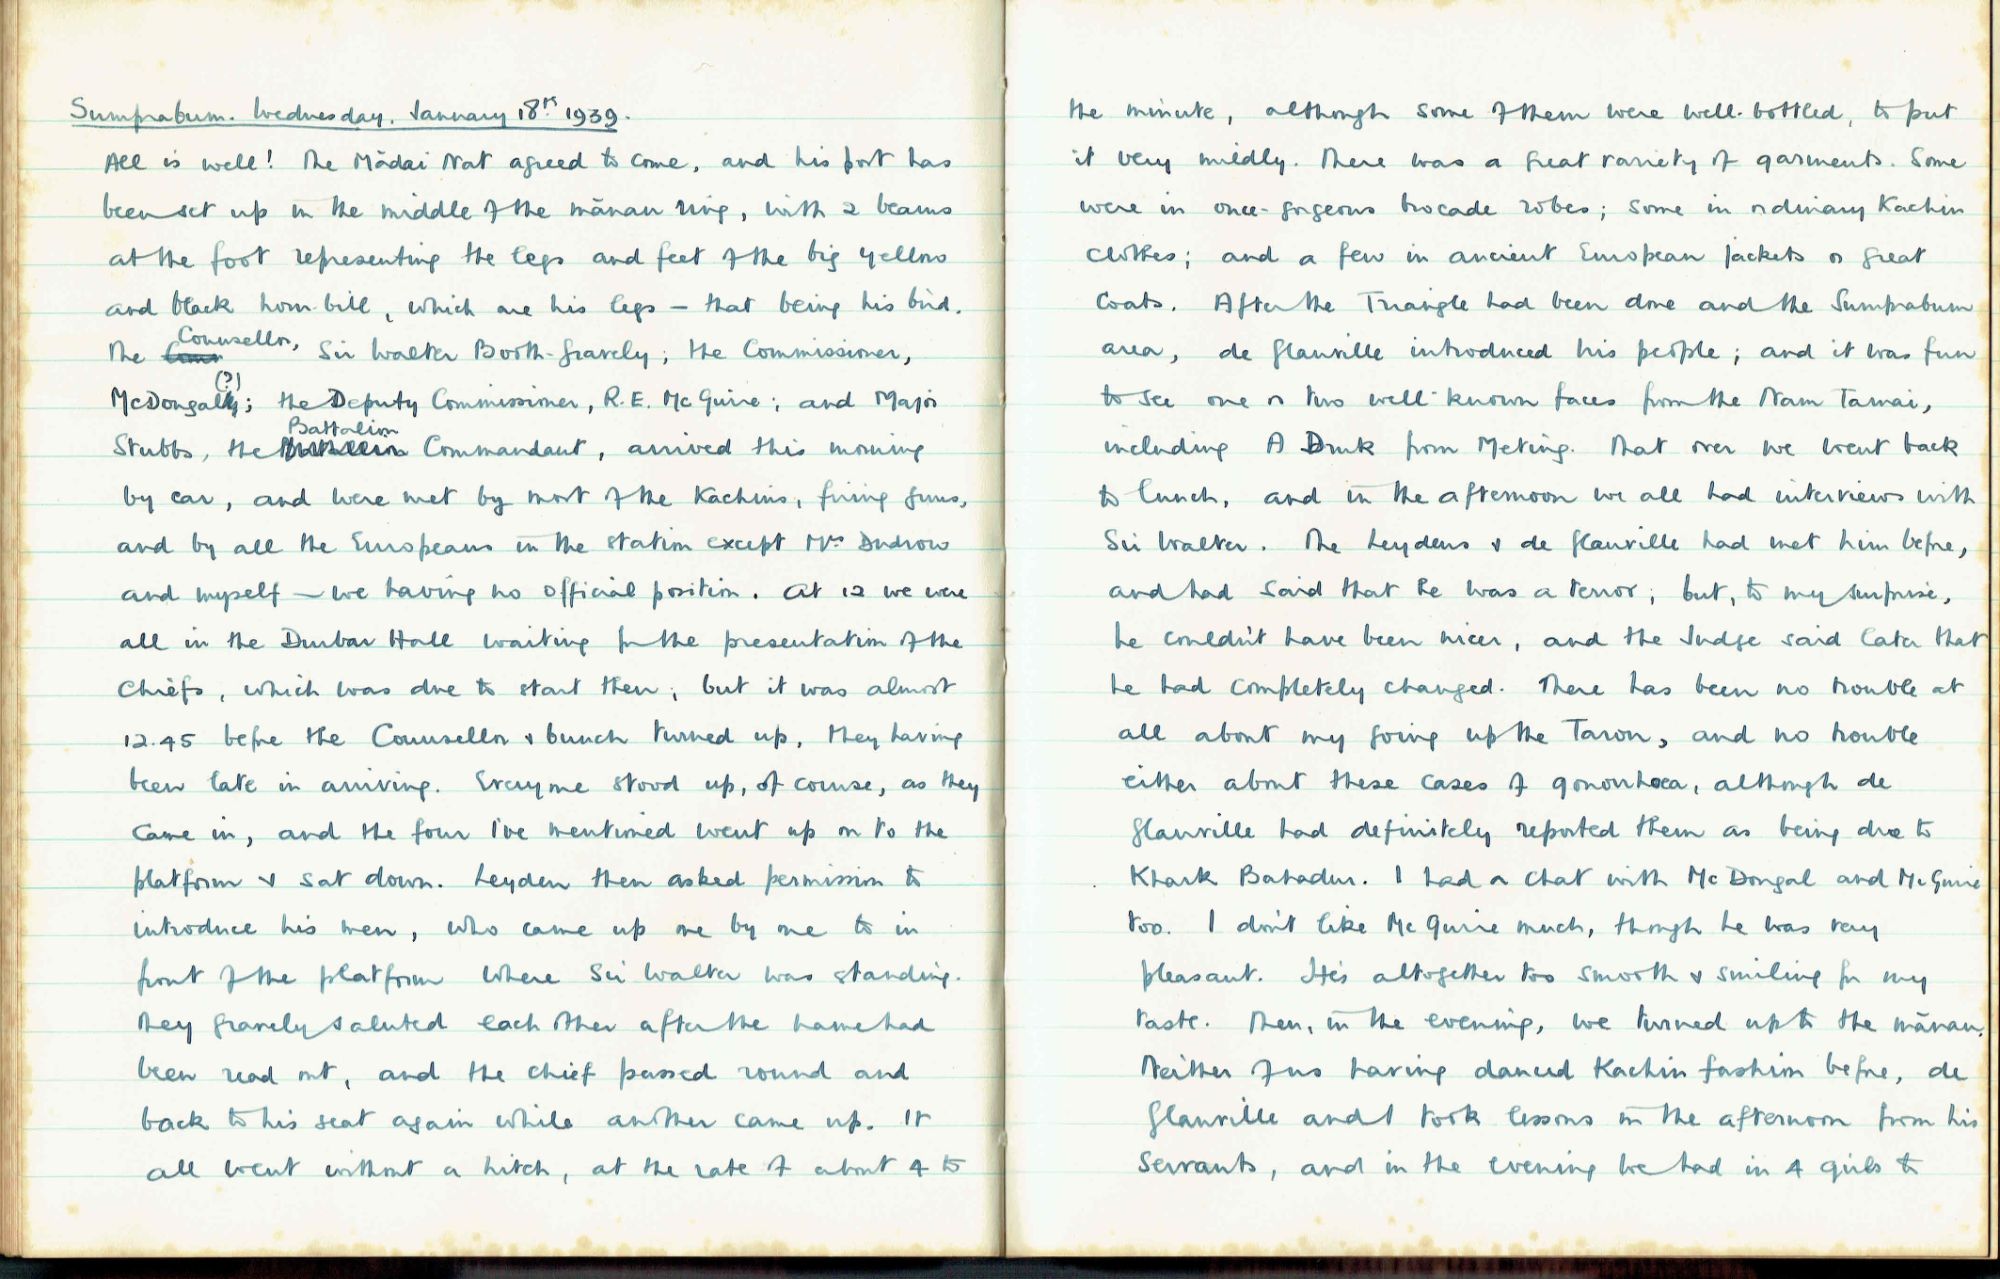 Sumprabum. Wednesday, January 18th 1939.
All is well! The Mādai Nat agreed to come, and his post has
been set up in the middle of the mānau ring, with 2 beams
at the foot representing the legs and feet of the big yellow
and black horn-bill, which are his legs – that being his bird.
The Counsellor, Sir Walter Booth-Gravely; the Commissioner,
McDongall (?); the Deputy Commissioner, R.E. McGuire; and Major
Stubbs, the Battalion Commandant, arrived this morning
by car, and were met by most of the Kachins, firing guns,
and by all the Europeans in the station except Mrs Dudrow
and myself – we having no official position. At 12 we were
all in the Durbar Hall waiting for the presentation of the
Chiefs, which was due to start then; but it was almost
12.45 before the Counsellor & bunch turned up, they having
been late in arriving. Everyone stood up, of course, as they
came in, and the four I've mentioned went up on to the
platform & sat down. Leyden then asked permission to
introduce his men, who came up one by one to in
front of the platform where Sir Walter was standing.
They gravely saluted each other after the name had
been read out, and the chief passed round and
back to his seat again while another came up. It
all went without a hitch, at the rate of about 4 to
the minute, although some of them were well-bottled, to put
it very mildly. There was a great variety of garments. Some
were in once-gorgeous brocade robes; some in ordinary Kachin
clothes; and a few in ancient European jackets or great
coats. After the Triangle had been done and the Sumprabum
area, de Glanville introduced his people; and it was fun
to see one or two well-known faces from the Nam Tamai,
including A Druk from Meting. That over we went back
to lunch, and in the afternoon we all had interviews with
Sir Walter. The Leydens & de Glanville had met him before,
and had said that he was a terror; but, to my surprise,
he couldn't have been nicer, and the Judge said later that
he had completely changed. There has been no trouble at
all about my going up the Taron, and no trouble
either about these cases of gonorrhoea, although de
Glanville had definitely reported them as being due to
Khark Bahadur. I had a chat with McDongal and McGuire
too. I don't like McGuire much, though he was very
pleasant. He's altogether too smooth & smiling for my
taste. Then, in the evening, we turned up to the mānau.
Neither of us having danced Kachin fashion before, de
Glanville and I took lessons in the afternoon from his
servants, and in the evening we had in 4 girls to